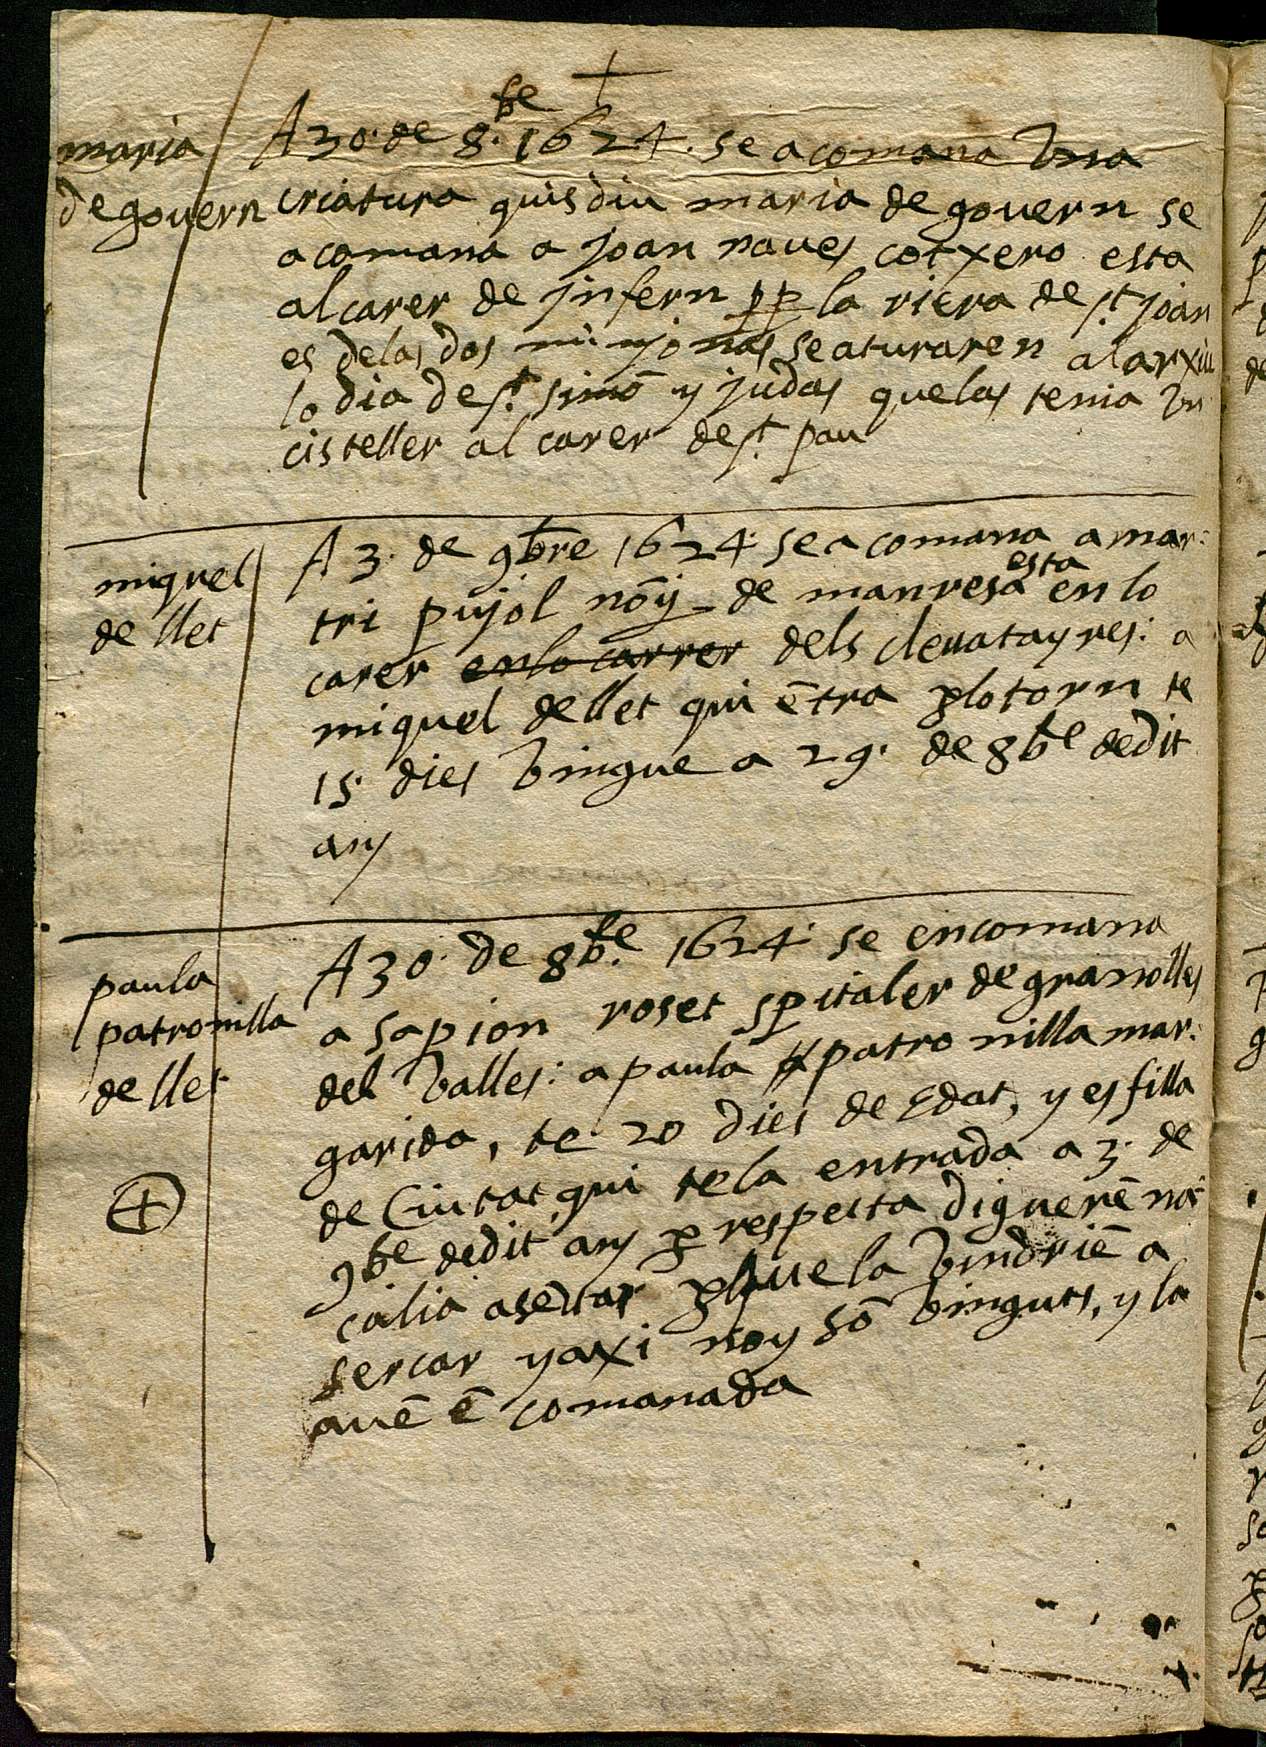 +
maria
de govern
A 30. de 8.bre 1624. se acomana Una
criatura quis diu maria de govern se
acomana a joan naves cotxero esta
al carer de jnfern pp la riera de st joan
es de las dos minjonas se aturaren al arxiu
lo dia de st. simō y judas que las tenia Un
cisteller al carer de st pau
miquel
de llet
A 3. de 9bre 1624. se acomana a mar:
tri pujol nōy de manresa esta en lo
carer en lo carrer dels clevatayres: a
miquel de llet qui ētra p lo torn te
15. dies Vingue a 29. de 8bre dedit
any
paula
patronilla
de llet
A 30. de 8bre. 1624. se encomana
a sapion roset spitaler de granolles
del Valles: a paula patronilla mar:
garida, te 20 dies de Edat, y es filla
de Ciutat qui te la entrada a 3. de
9bre dedit any p respecta diguerē no
calia asentar p que la Vindriē a
sercar y axi noy sō Vinguts, y la
avē ē comanada